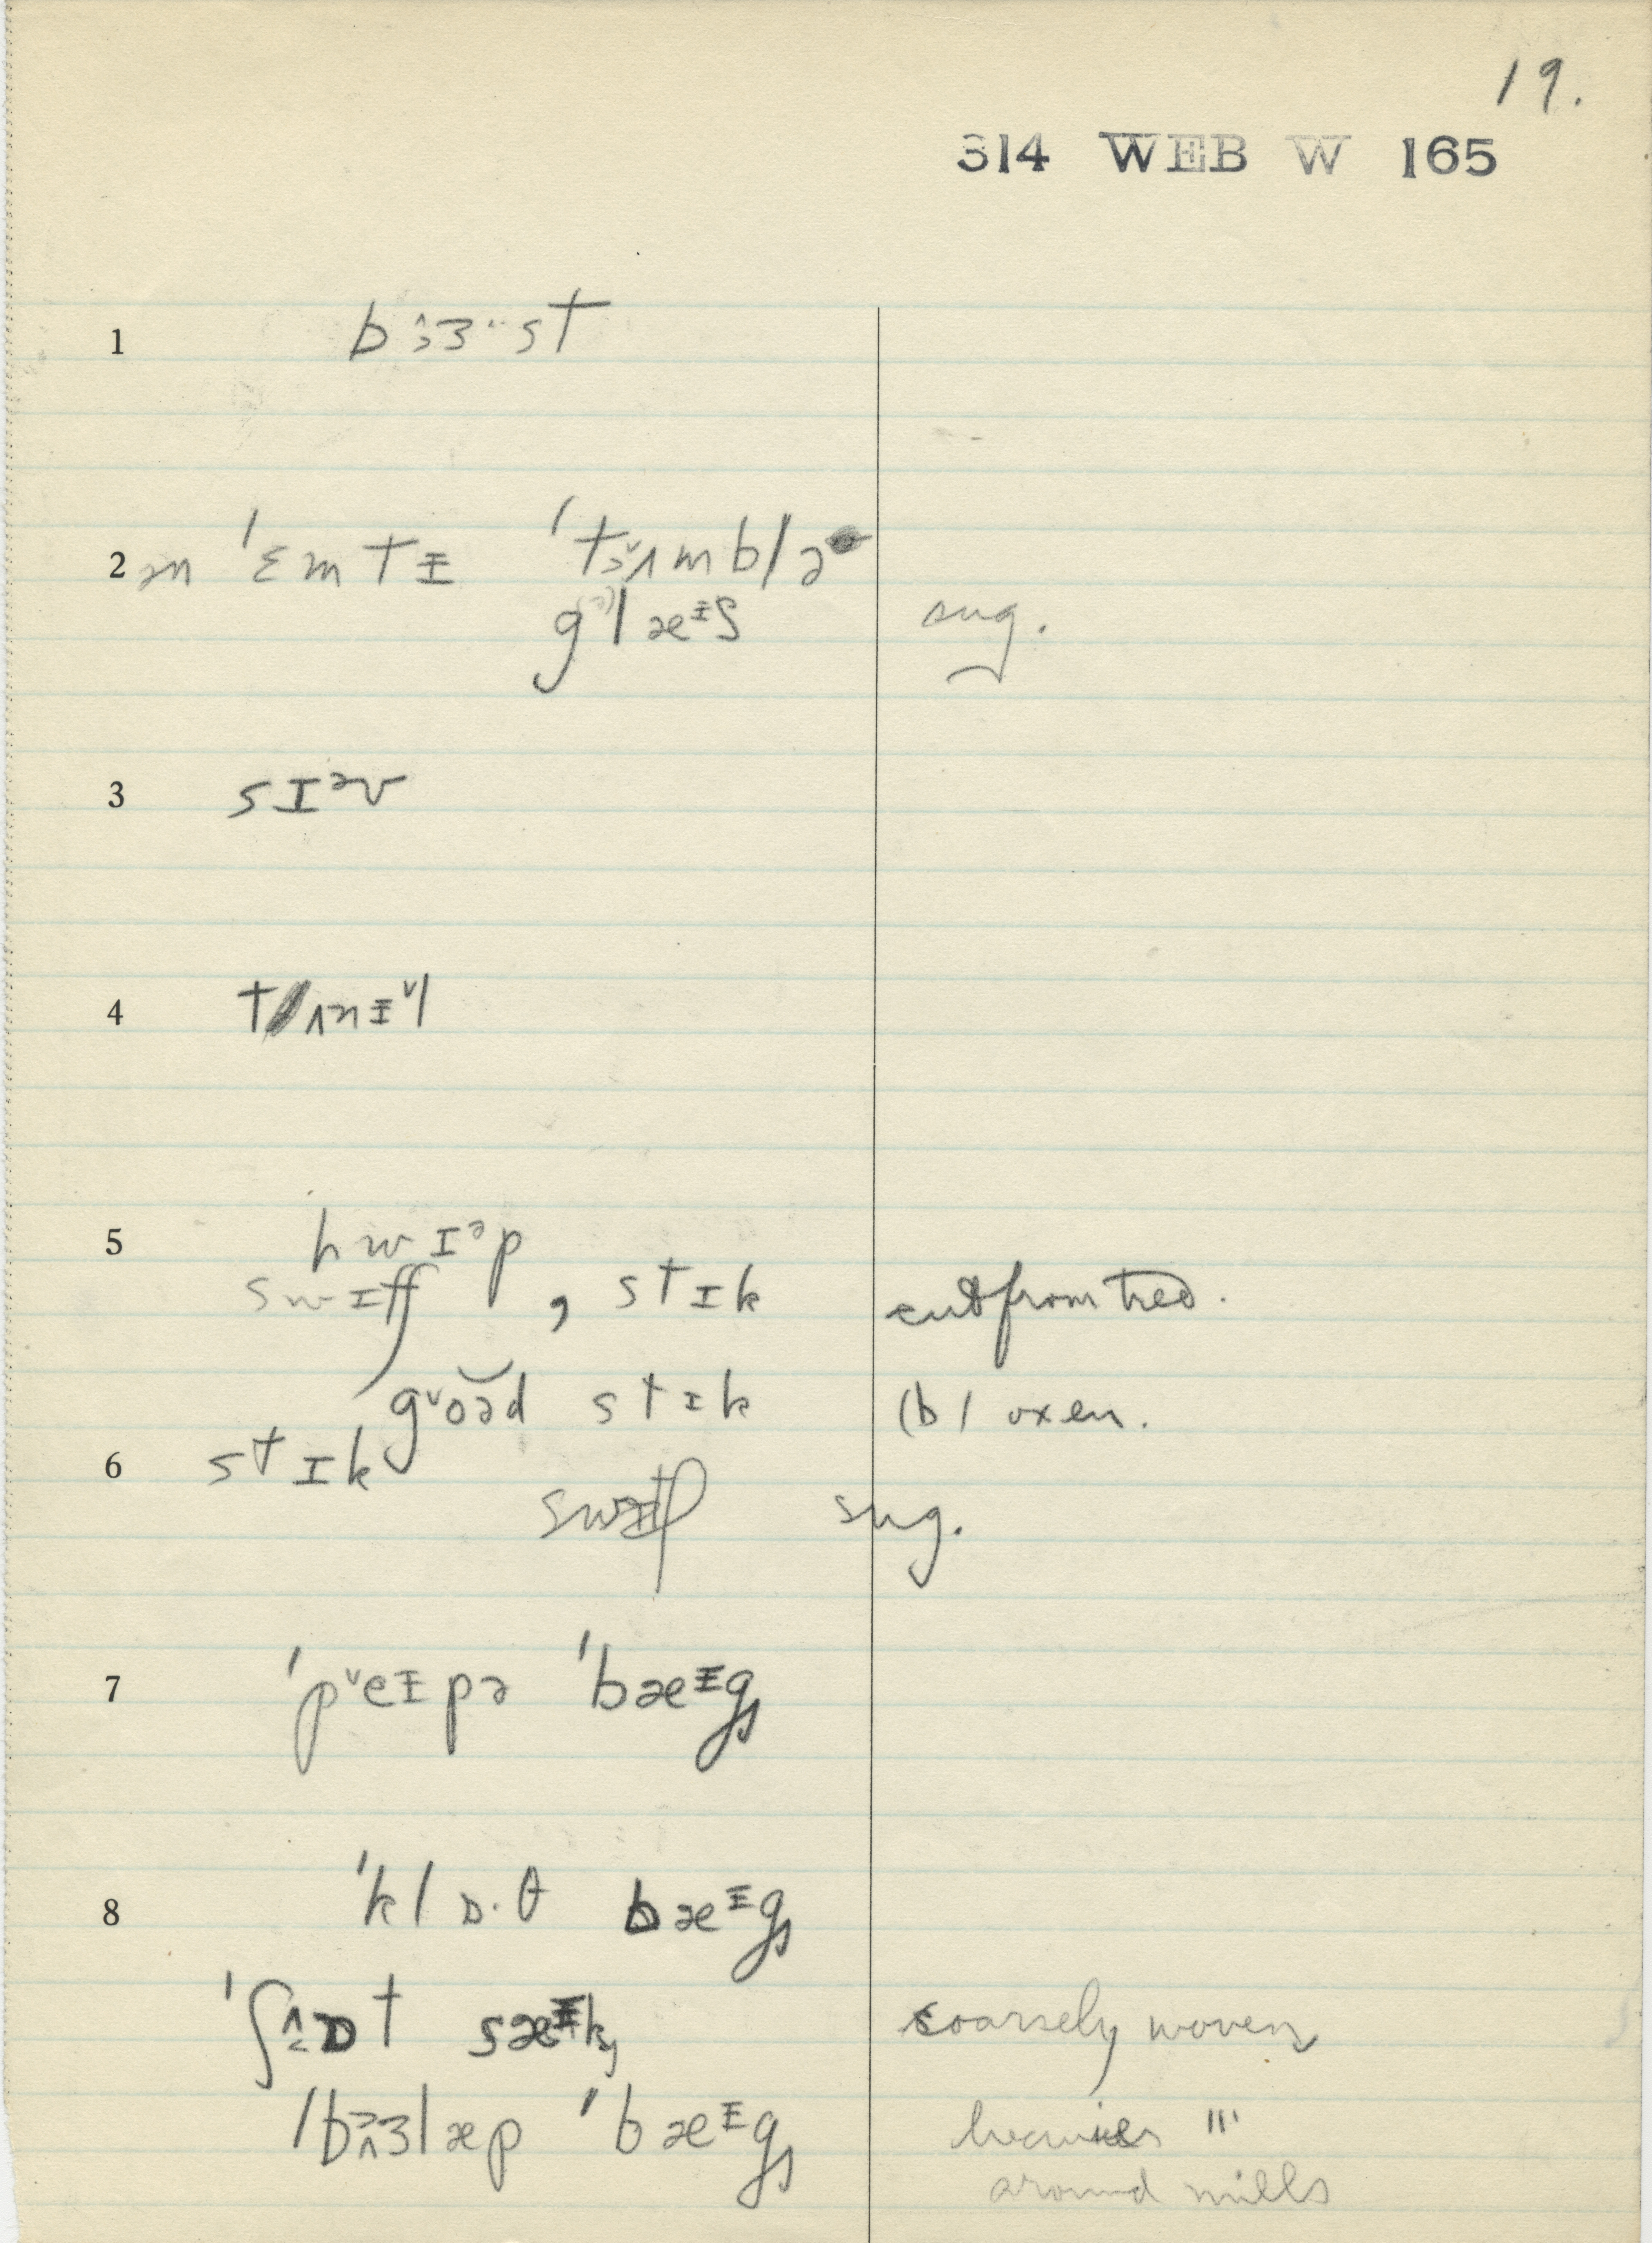 19.
314 WEB W 165
1 b ɜ· st
2 ən ˈɛmtɪ ˈtʌmblə
glæᵻs sug.
3 sɪᵊv
4 tʌnɪl
5 hwɪᵊp
swɪtʃ, stɪk cut from tree.
goəd stɪk (b) oxen.
6 stɪk
sug.
7 ˈpˇeᵻpə ˈbæᵻgs
8 ˈklɒ·θ bæᵻgs
sæᵻks coarsely woven
ˈbɜlæp ˈbæᵻgs heavier "
around mills